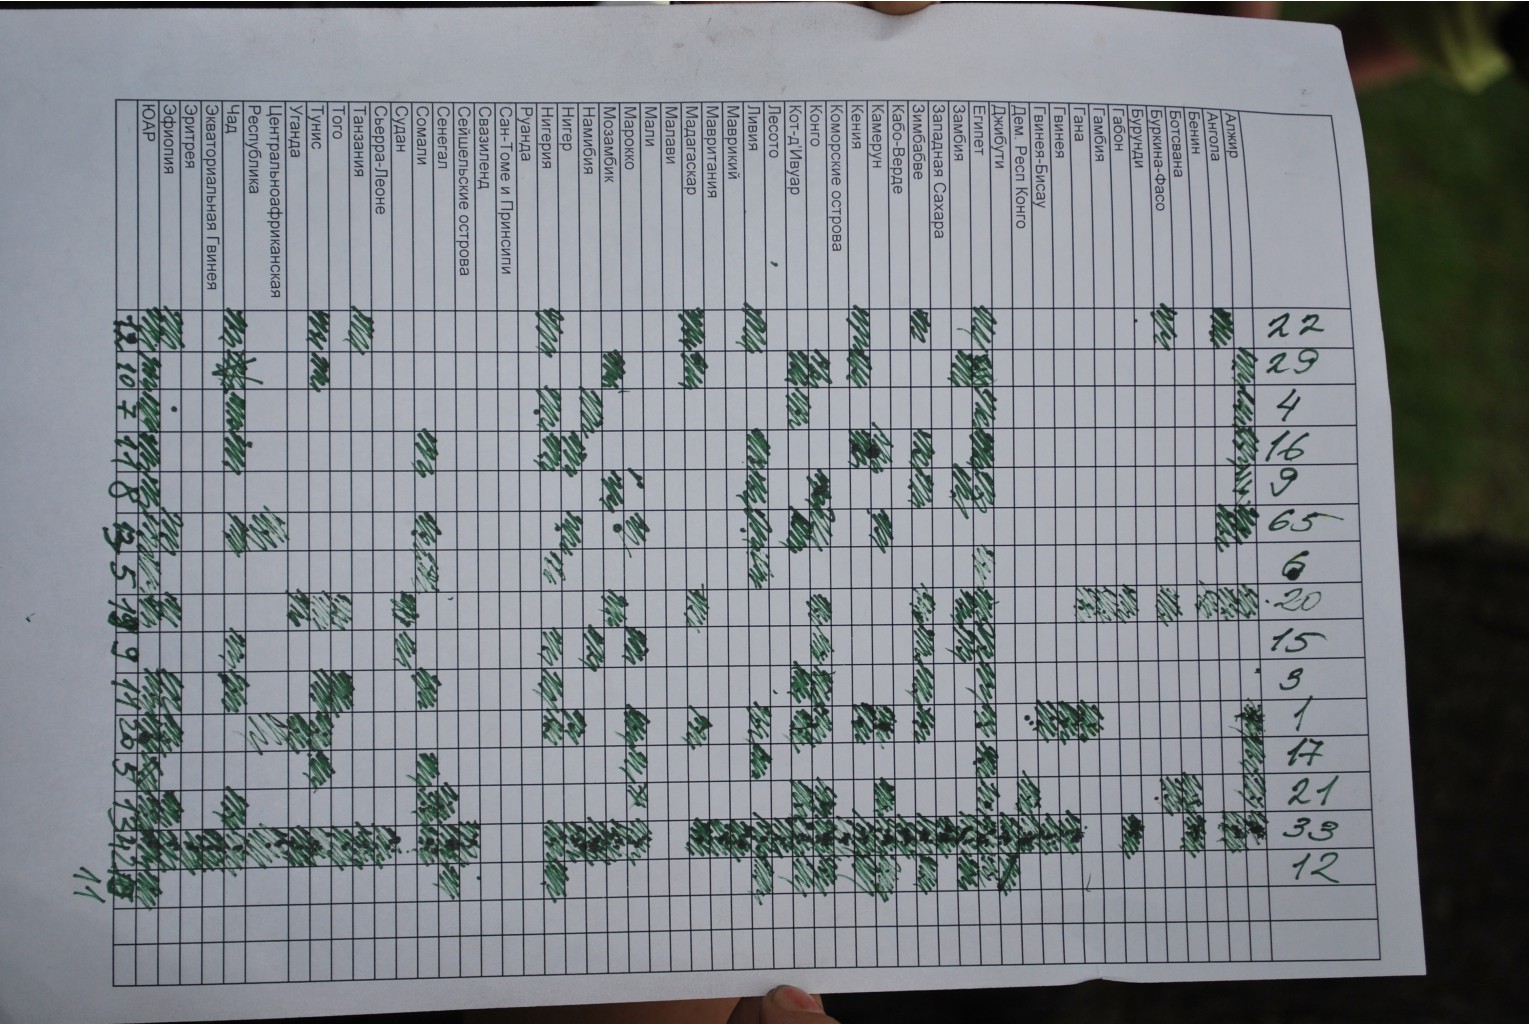 22
29
4
16
9
65
6
20
15
3
1
17
21
33
12
Алжир
Ангола
Бенин
Ботсвана
Буркина-Фасо
Бурунди
Габон
Гамбия
Гана
Гвинея
Гвинея-Бисау
Дем. Респ Конго
Джибути
Египет
Замбия
Западная Сахара
Зимбабве
Кабо-Верде
Камерун
Кения
Коморские острова
Конго
Кот-д'Ивуар
Лесото
Ливия
Маврикий
Мавритания
Мадагаскар
Малави
Мали
Марокко
Мозамбик
Намибия
Нигер
Нигерия
Руанда
Сан-Томе и Принсипи
Свазиленд
Сейшельские острова
Сенегал
Сомали
Судан
Сьерра-Леоне
Танзания
Того
Тунис
Уганда
Центральноафриканская
Республика
Чад
Экваториальная Гвинея
Эритрея
Эфиопия
ЮАР
10
7
11
8
5
19
9
14
20
5
13
11